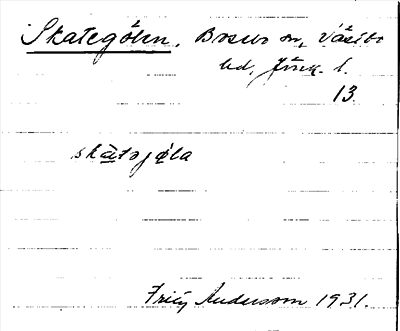 Skategölen, Bosebo sn, Västbo
hd, Jönk. l.
13.
skàtəjøla
Frity Andersson 1931.